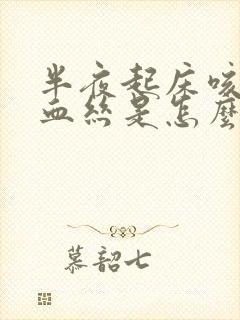 半夜起床咳
血絲是怎麼
慕韶七